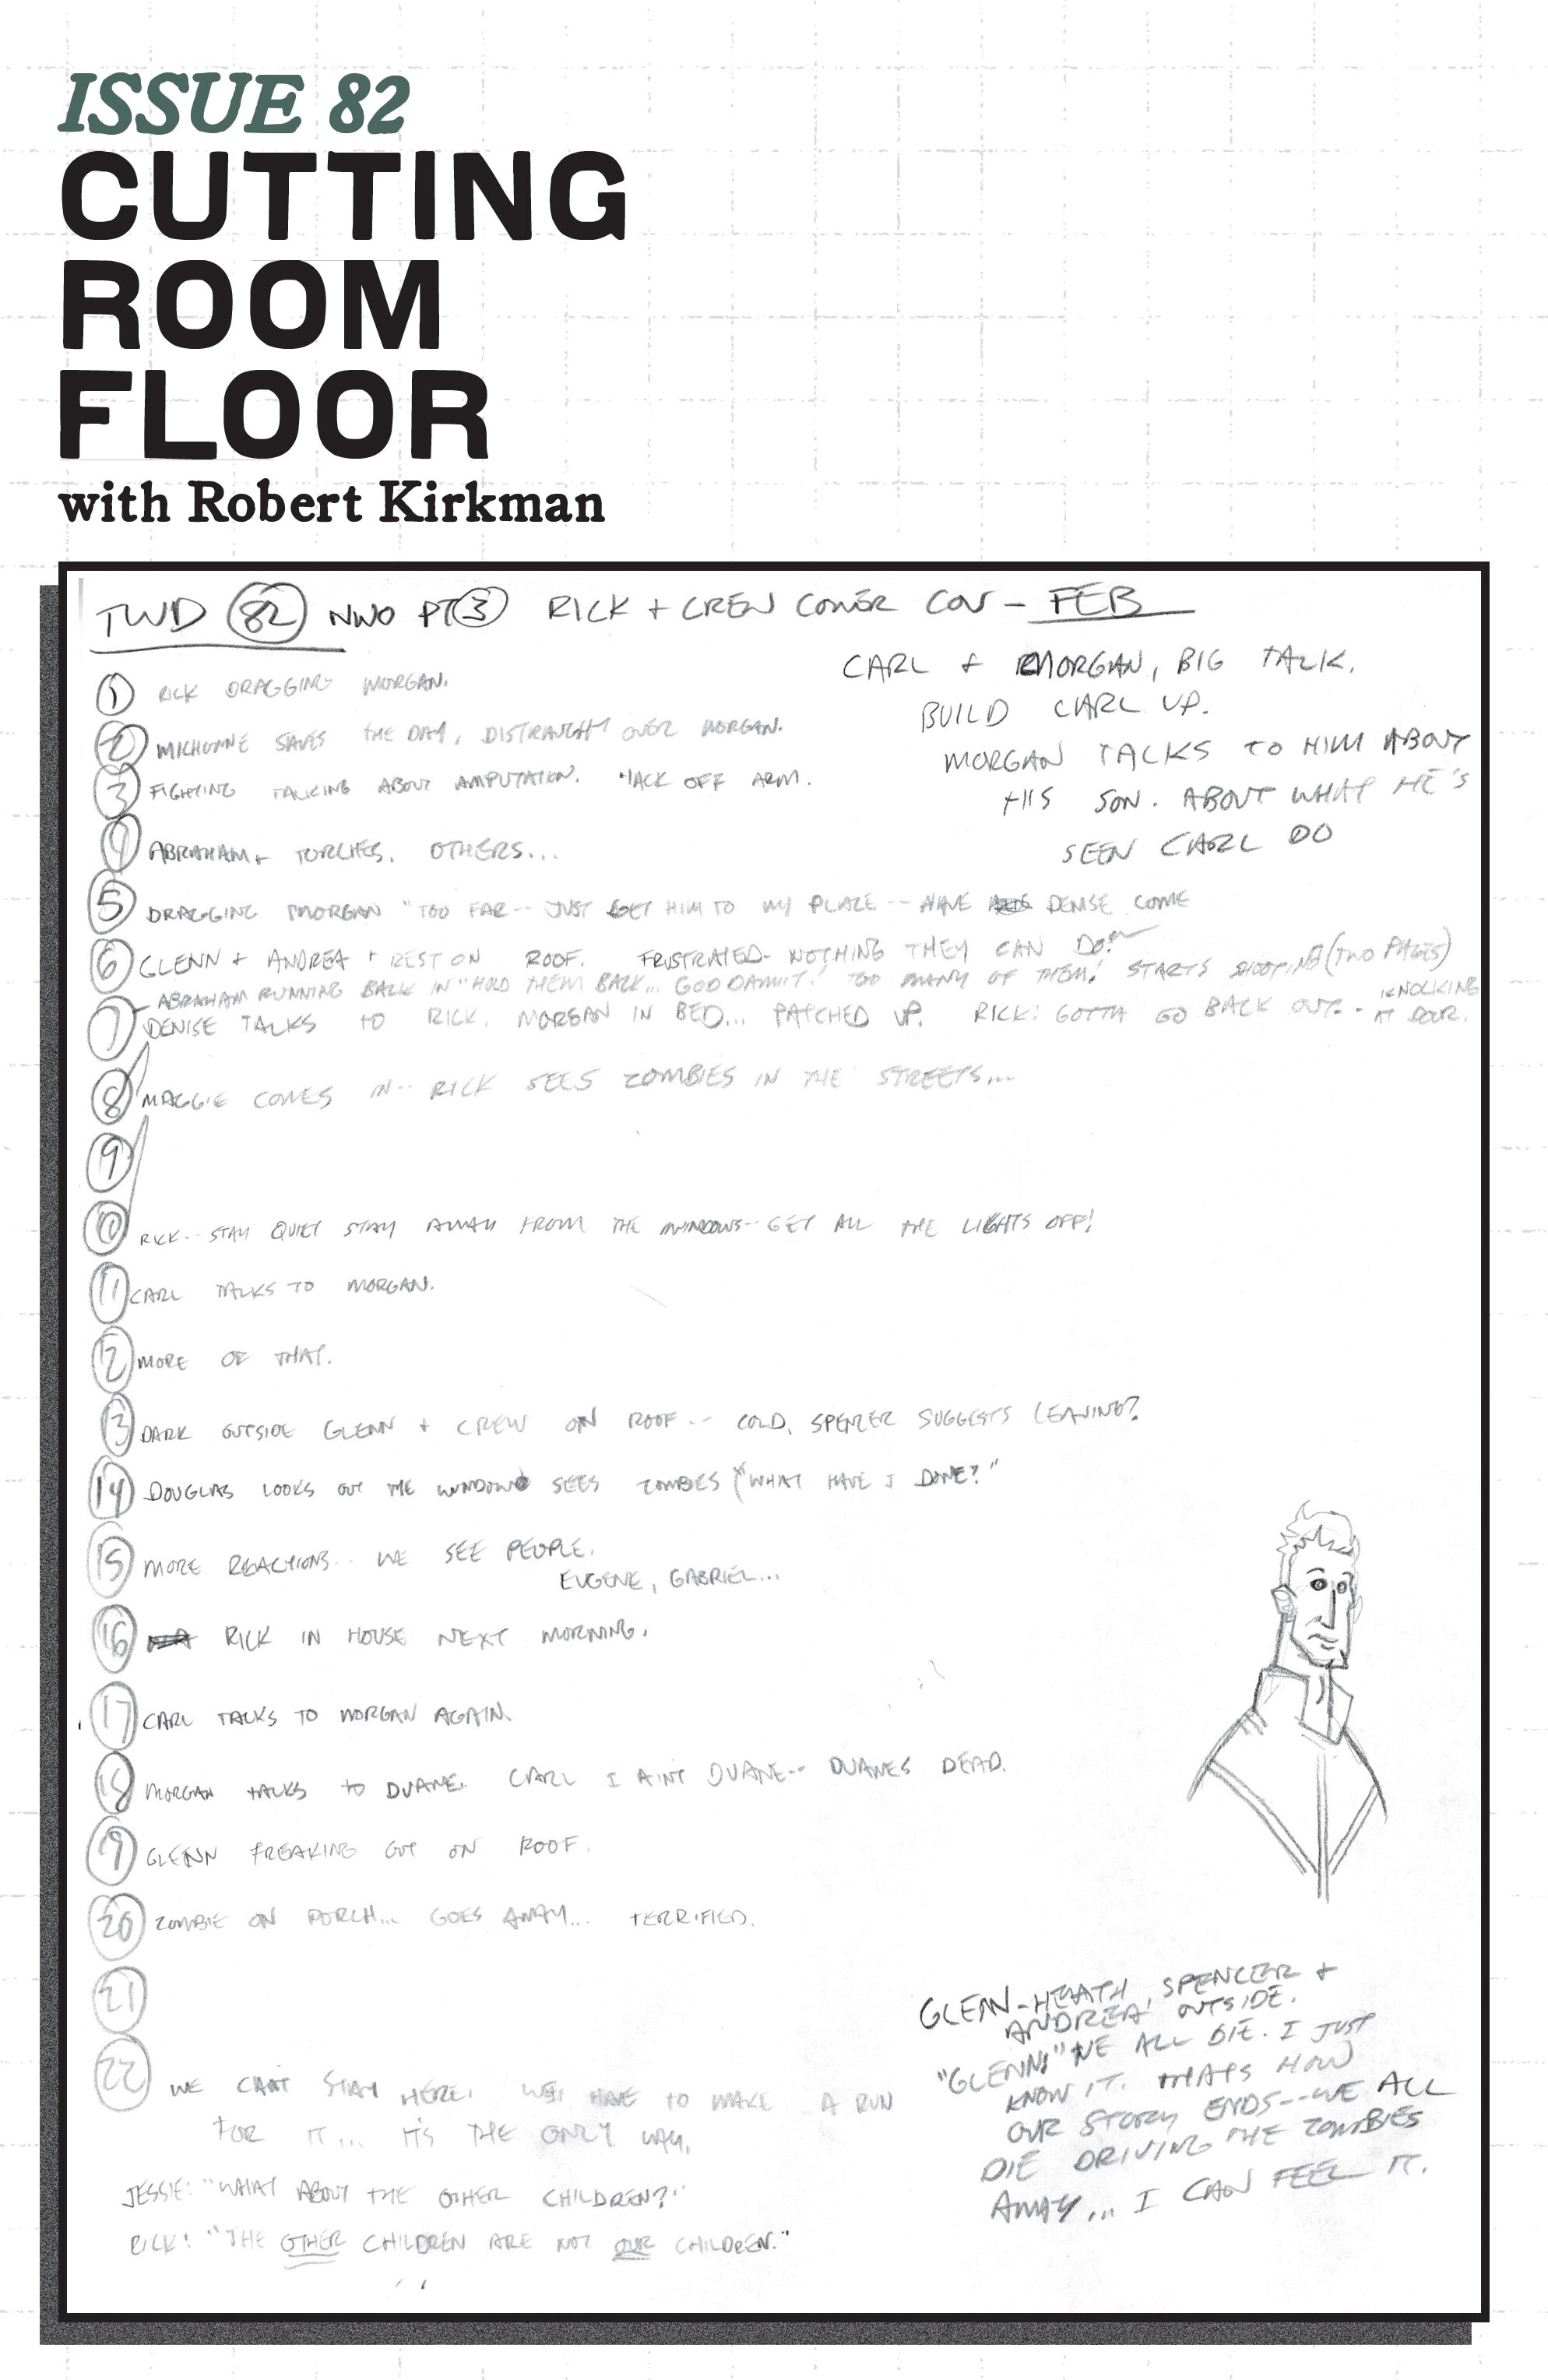 ISSUE 82
CUTTING
ROOM
FLOOR
with Robert Kirkman
TWD 82 NWO PT 3 RICK + CREW COVER COV - FEB
CARL + MORGAN, BIG TALK.
BUILD CARL UP.
MORGAN TALKS TO HIM ABOUT
HIS SON. ABOUT WHAT HE'S
SEEN CARL DO
1 RICK DRAGGING MORGAN.
2 MICHONNE SAVES THE DAY, DISTRAUGHT OVER MORGAN.
3 FIGHTING TALKING ABOUT AMPUTATION. HACK OFF ARM.
4 ABRAHAM + TORCHES. OTHERS...
5 DRAGGING MORGAN "TOO FAR-- JUST GET HIM TO MY PLACE -- HAVE DENISE COME
6 GLENN + ANDREA + REST ON ROOF. FRUSTRATED- NOTHING THEY CAN DO?
ABRAHAM RUNNING BACK IN "HOLD THEM BACK... GOD DAMMIT! TOO MANY OF THEM! STARTS SHOOTING (TWO PAGES)
7 DENISE TALKS TO RICK. MORGAN IN BED... PATCHED UP. RICK: GOTTA GO BACK OUT-- KNOCKING AT DOOR.
8 MAGGIE COMES IN-- RICK SEES ZOMBIES IN THE STREETS...
9
10 RICK-- STAY QUIET STAY AWAY FROM THE WINDOWS-- GET ALL THE LIGHTS OFF!
11 CARL TALKS TO MORGAN.
12 MORE OF THAT.
13 DARK OUTSIDE GLENN + CREW ON ROOF -- COLD. SPENCER SUGGESTS LEAVING?
14 DOUGLAS LOOKS OUT THE WINDOW SEES ZOMBIES ("WHAT HAVE I DONE?"
15 MORE REACTIONS-- WE SEE PEOPLE.
EUGENE, GABRIEL...
16 RICK IN HOUSE NEXT MORNING.
17 CARL TALKS TO MORGAN AGAIN.
18 MORGAN TALKS TO DUANE. CARL I AINT DUANE-- DUANES DEAD.
19 GLENN FREAKING OUT ON ROOF.
20 ZOMBIE ON PORCH... GOES AWAY... TERRIFIED.
21
22 WE CAN'T STAY HERE. WE HAVE TO MAKE A RUN
FOR IT... IT'S THE ONLY WAY.
JESSIE: "WHAT ABOUT THE OTHER CHILDREN?"
RICK: "THE OTHER CHILDREN ARE NOT OUR CHILDREN."
GLENN-HEATH, SPENCER +
ANDREA OUTSIDE.
"GLENN" WE ALL DIE. I JUST
KNOW IT. THATS HOW
OUR STORY ENDS--WE ALL
DIE DRIVING THE ZOMBIES
AWAY... I CAN FEEL IT.